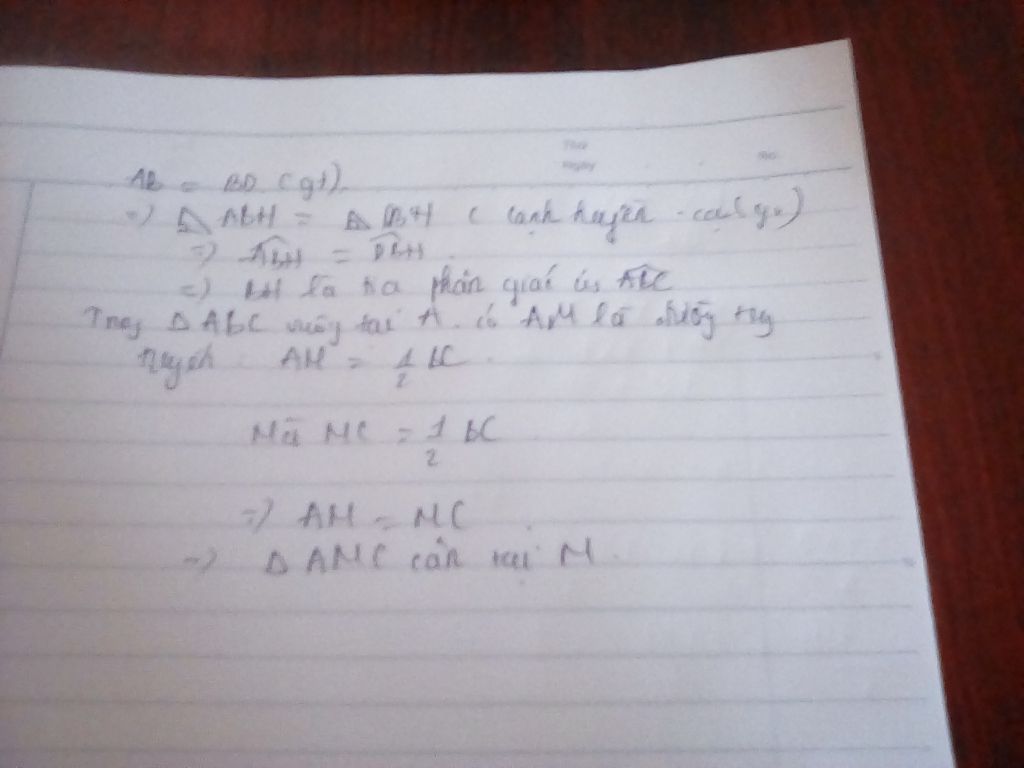 Thứ
Ngày No.
AB = BD (gt).
=) Δ ABH = Δ DBH ( cạnh huyền - cạ( gv)
=) ABH = DBH
=) BH là tia phân giác ABC
Trog Δ ABC vuông tại A. có AM là đường trg
tuyến AM = 1/2 BC.
Mà MC = 1/2 bC
=) AM = MC
=) Δ AMC cân tại M.